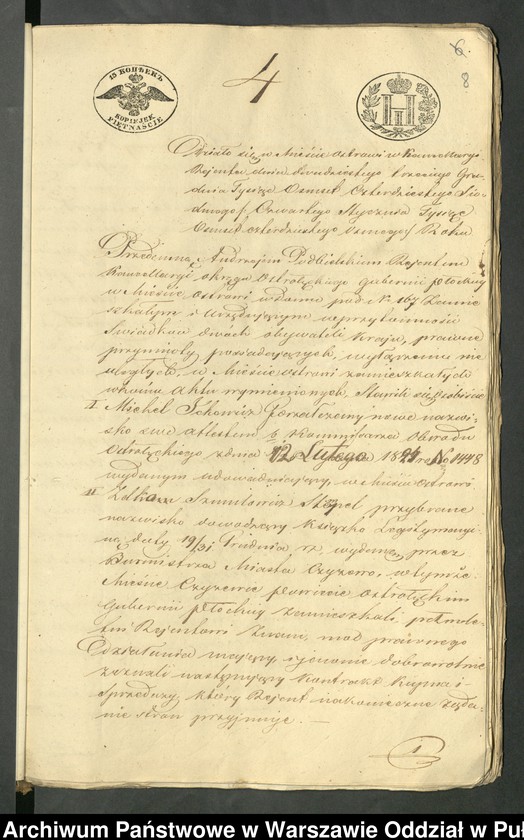 6.
8
4
15 КОПѢЕКЪ
KOPIEJEK
PIĘTNAŚCIE
Działo się w Mieście Ostrowi w Kancellaryi
Rejenta dnia dwudziestego trzeciego Gru-
dnia Tysiąc Osmset Czterdziestego Sió-
dmego / Czwartego Stycznia Tysiąc
Osmset czterdziestego Osmego / Roku
Przedemną Andrzejem Podbielskim Rejentem
Kancellaryi okręgu Ostrołęckiego Gubernii Płockiey
w Mieście Ostrowi w domu pod N. 167 zamie-
szkałym i Urzędującym w przytomności
Świadków dwóch obywateli Kraju, prawne
przymioty posiadających, wyłączeniu nie
uległych, w Mieście Ostrowi zamieszkałych
w końcu Aktu wymienionych, Stawili się osobiście
I Michel nowe nazwi-
sko swe attestem Kommissarza obwodu
Ostrołęckiego z dnia 12 Lutego 18 No 1448
wydanym udowadniający, w Mieście Ostrowi
II Szmulowicz przybrane
nazwisko dowodzący Książką Legitymacyi-
ną daty 19/31 Grudnia r. z. wydaną przez
Burmistrza Miasta Czyżewa, w tymże
Mieście Czyżewie powiecie Ostrołęckim
Gubernii Płockiey zamieszkali,
Rejentowi znani, moc prawnego
Działania mający, i jawnie dobrowolnie
zeznali następujący Kontrakt Kupna i
Sprzedaży, który Rejent na żąda-
nie stron przyjmuje. —
Archiwum Państwowe w Warszawie Oddział w Puł